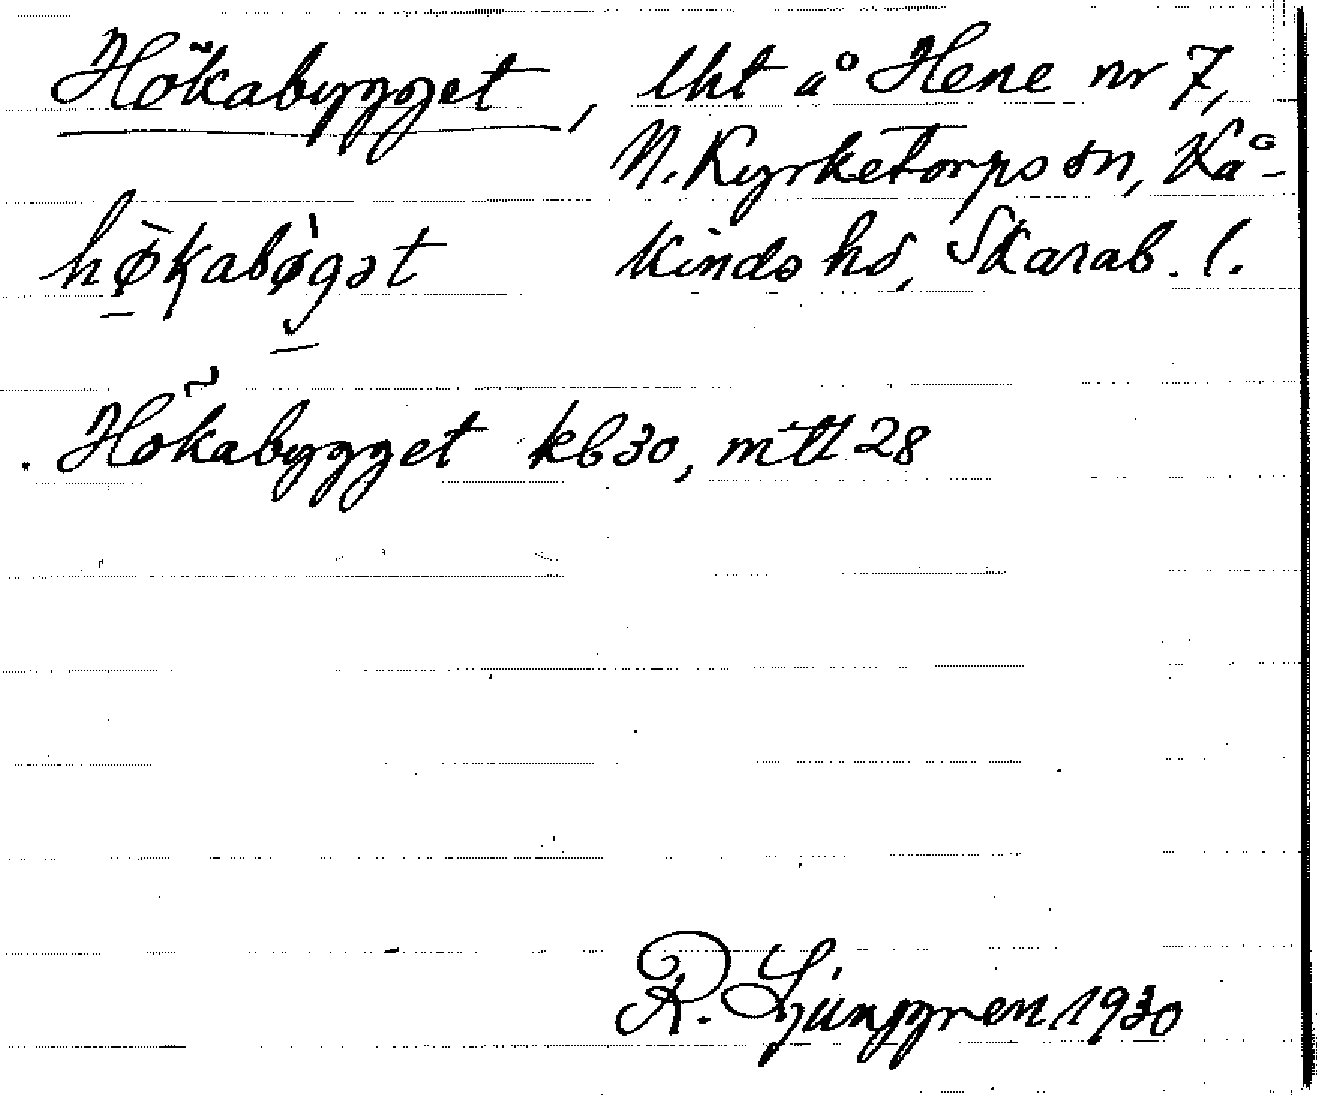 Hökabygget, lht å Hene nr 7,
N. Kyrketorps sn, Kå-
høkabøgət kinds hd, Skarab. l.
Hökabygget kb 30, mtl 28
R. Ljunggren 1930